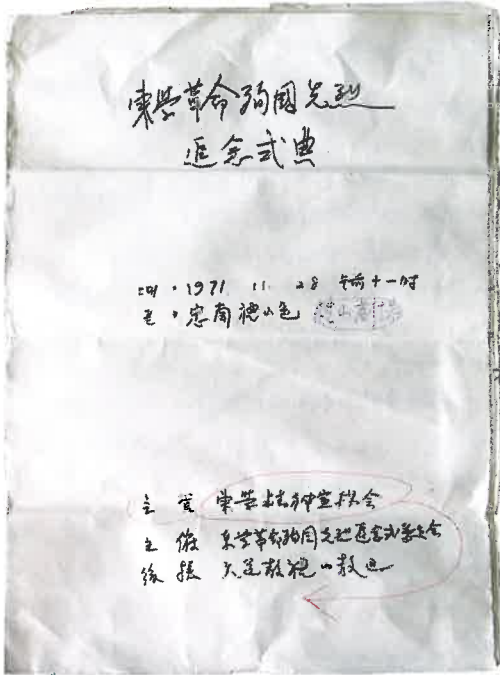 東學革命殉國先烈
追念式典
때 · 1971. 11. 28 午前十一時
곳 · 忠南德山邑
主 東學精神宣揚会
主催 東学革命殉国先烈追念式委員会
後援 天道教德山教区